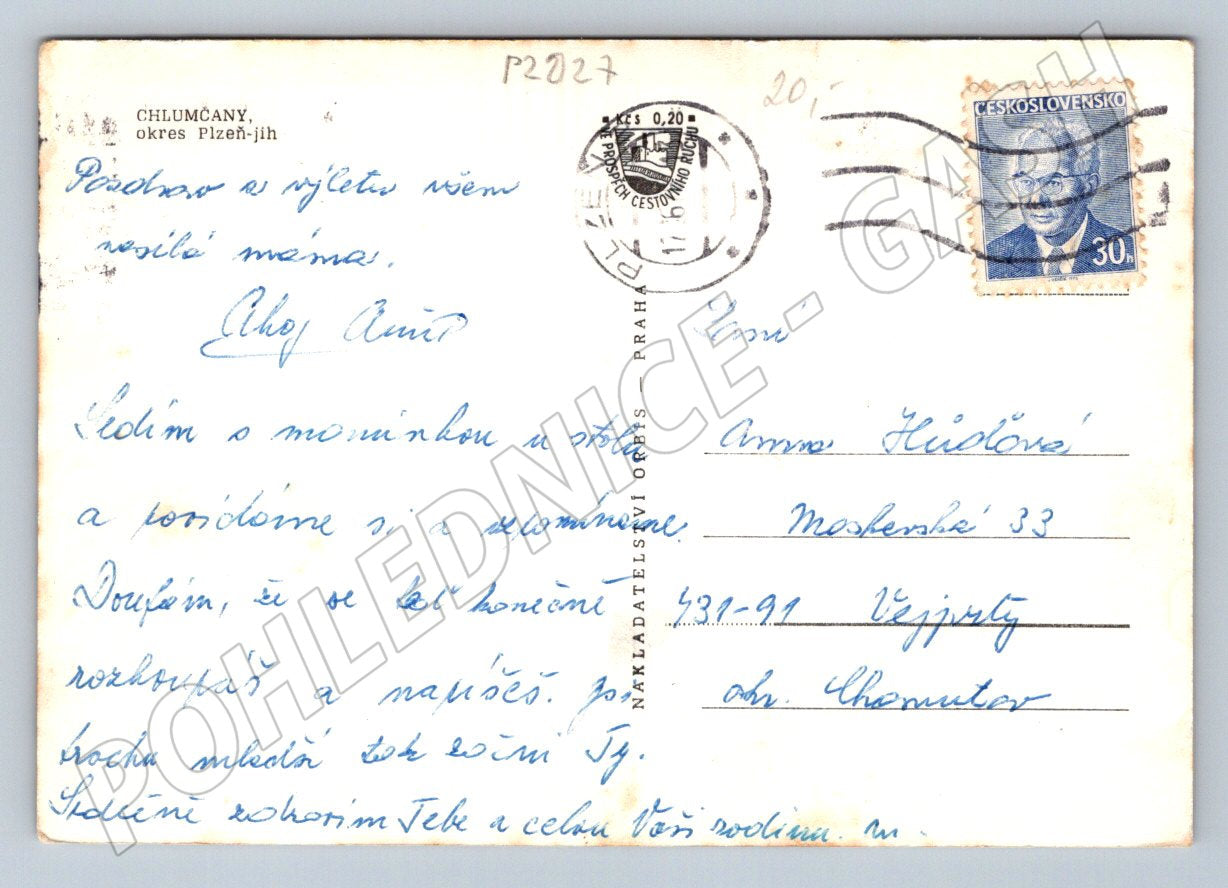 P2027
20,-
CHLUMČANY,
okres Plzeň-jih
Kčs 0,20
VE PROSPĚCH CESTOVNÍHO RUCHU
PLZEŇ
ČESKOSLOVENSKO
30h
Pozdrav z výletu všem
posílá máma.
Ahoj
NAKLADATELSTVÍ ORBIS — PRAHA
Sedím s maminkou u stolu
a povídáme si a vzpomínáme.
Doufám, že se teď konečně
rozhoupáš a napíšeš. Jsi
trochu mladší tak začni Ty.
Srdečně zdravím Tebe a celou Vaši rodinu.
Anna Hůďová
Moskevská 33
431-91 Vejprty
okr. Chomutov
POHLEDNICE - GASH